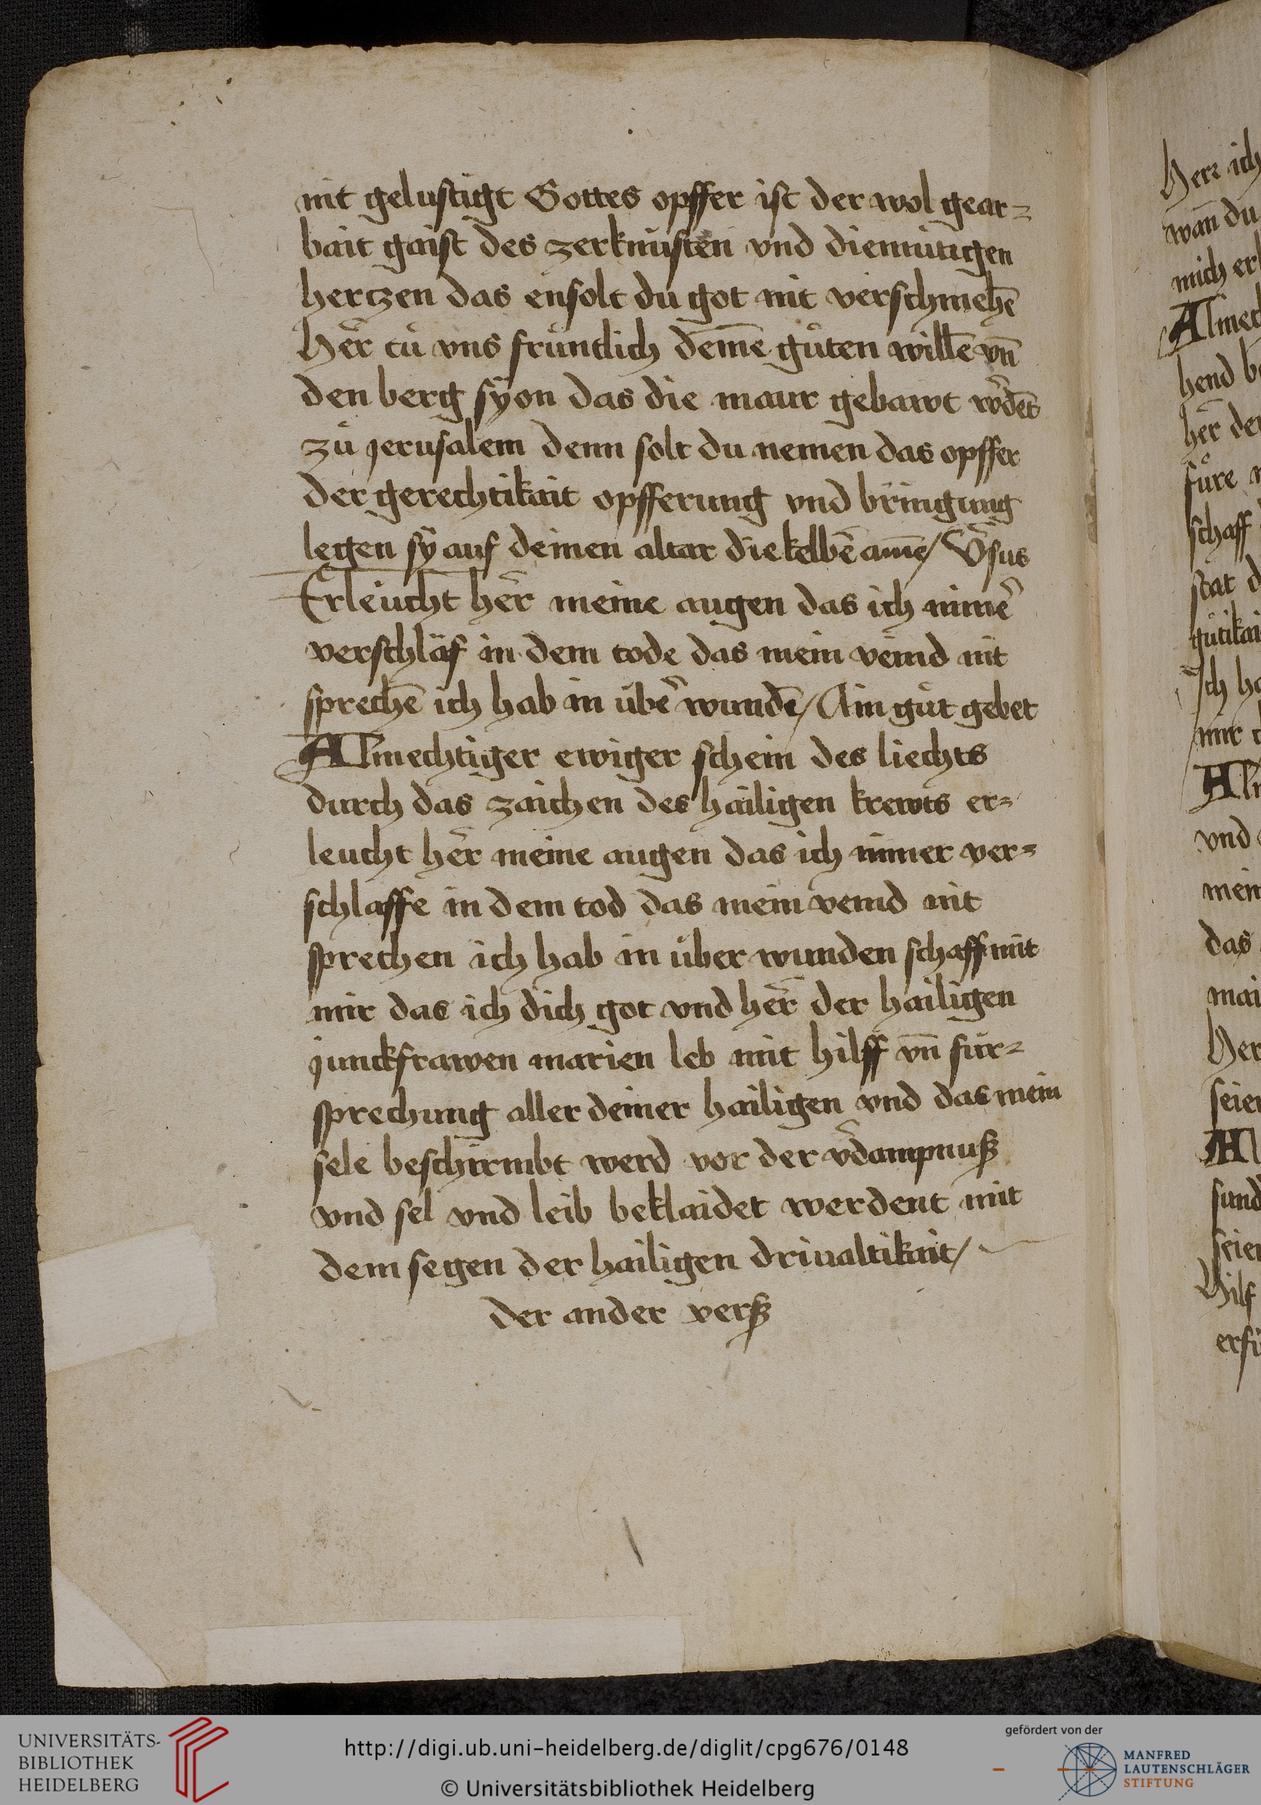 nit gelustigt Gottes opffer ist der wol gear-
bait gaist des zerknůsten vnd diemütigen
hertzen das ensolt du got nit verschmehē
Her tů vns fruntlich deme gůten willē vn̄
den berg syon das die maur gebawt w̉dēt
zů jerusalem denn solt du nemen das opffer
der gerechtikait opfferung vnd bringung
legen sy auf deinen altar die kelbē amē / V̉sus
Erleucht her meine augen das ich nimē
verschlaf in dem tode das mein veind nit
sprechē ich hab in übē wundē / Ain gůt gebet
Almechtiger ewiger schein des liechts
durch das zaichen des hailigen krewts er-
leucht her meine augen das ich nimer ver-
schlaffe in dem tod das mein veind nit
sprechen ich hab in über wunden schaff mit
mir das ich dich got vnd her der hailigen
junckfrawen marien leb mit hilff vn̄ für-
sprechung aller deiner hailigen vnd das mein
sele beschirmbt werd vor der v̉dampnuß
vnd sel vnd leib beklaidet werdent mit
dem segen der hailigen driualtikait /
der ander verß
Herr ich
wan̄ du
mich er
Almec
hend b
her de
füre
schaff
stat d
gůtikai
Ich ha
mir
Al
vnd
mein
das
mai
Her
seie
Al
sund
seie
Hilf
erfü
UNIVERSITÄTS-
BIBLIOTHEK
HEIDELBERG
http://digi.ub.uni-heidelberg.de/diglit/cpg676/0148
© Universitätsbibliothek Heidelberg
gefördert von der
MANFRED
LAUTENSCHLÄGER
STIFTUNG